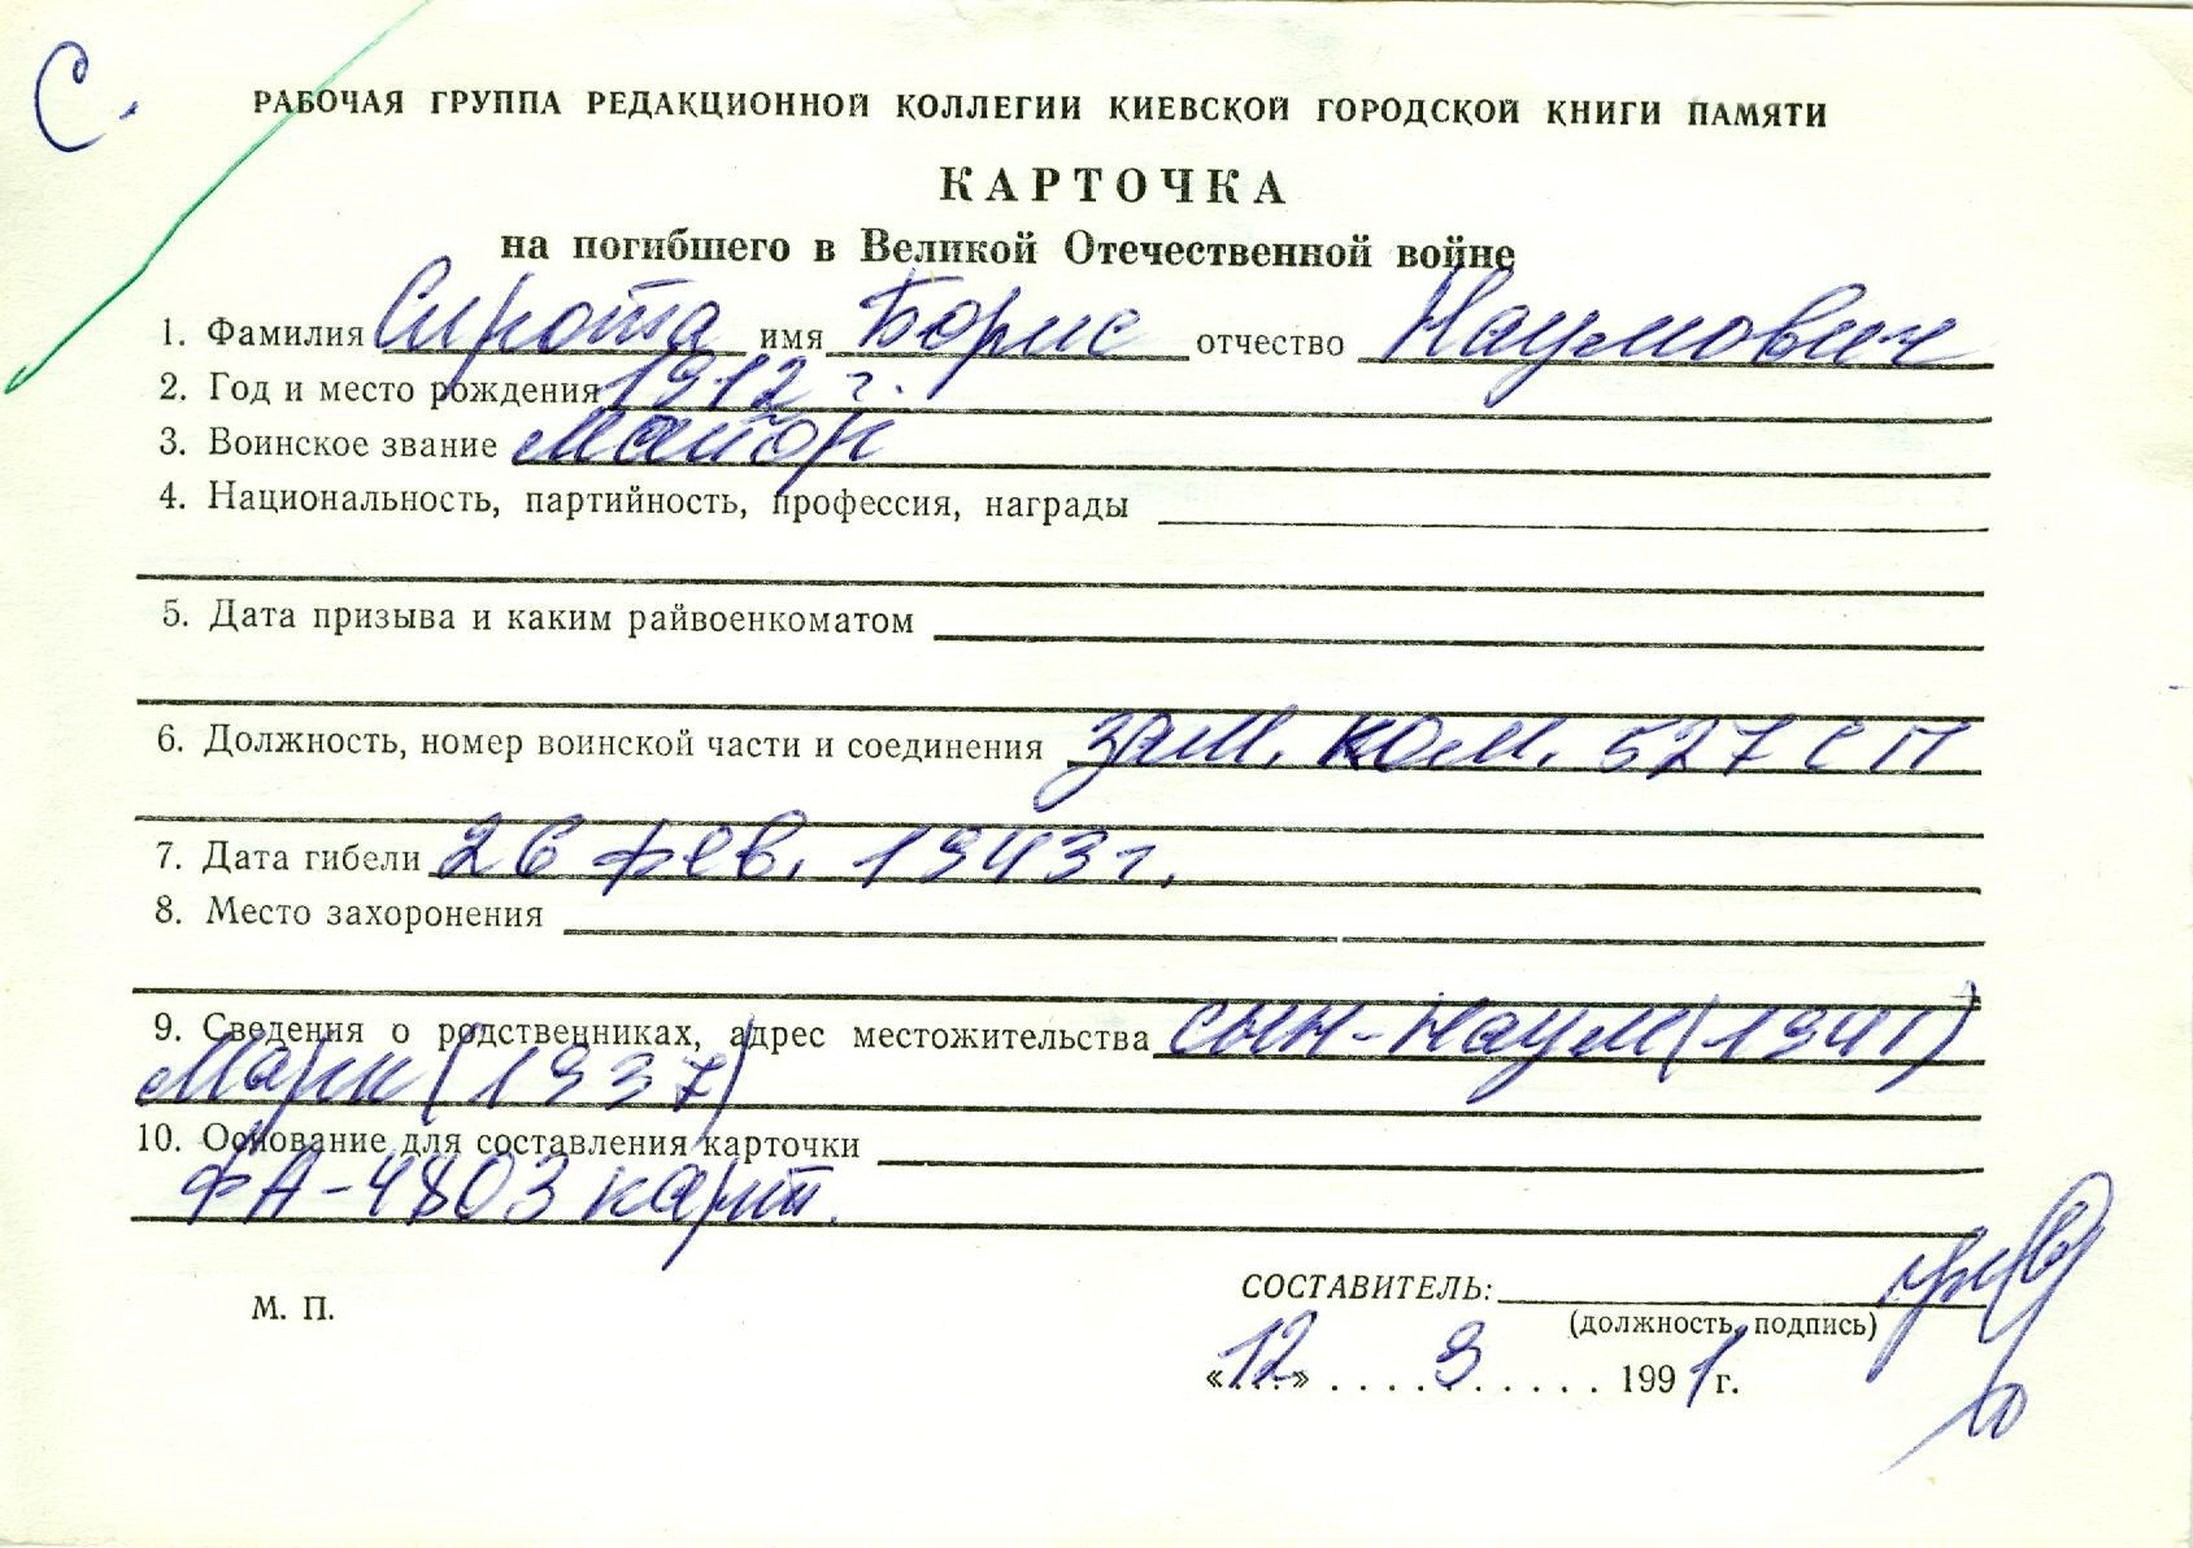 С.
РАБОЧАЯ ГРУППА РЕДАКЦИОННОЙ КОЛЛЕГИИ КИЕВСКОЙ ГОРОДСКОЙ КНИГИ ПАМЯТИ
КАРТОЧКА
на погибшего в Великой Отечественной войне
1. Фамилия Сирота имя Борис отчество Наумович
2. Год и место рождения 1912 г.
3. Воинское звание майор
4. Национальность, партийность, профессия, награды
5. Дата призыва и каким райвоенкоматом
6. Должность, номер воинской части и соединения зам. ком. 527 СП
7. Дата гибели 26 фев. 1943 г.
8. Место захоронения
9. Сведения о родственниках, адрес местожительства сын-Наум (1941)
Марк (1937)
10. Основание для составления карточки
ФА-4803 карт.
М. П.
СОСТАВИТЕЛЬ:
(должность, подпись)
«12» 9 1991 г.